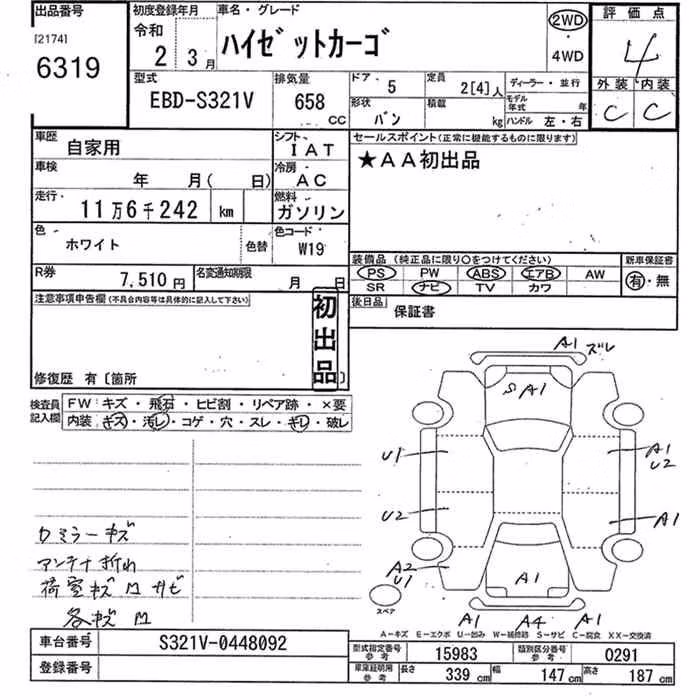 出品番号
[2174]
6319
初度登録年月
令和
2 3月
車名・グレード
ハイゼットカーゴ
2WD
・
4WD
評価点
4
外装 内装
C C
型式
EBD-S321V
排気量
658
CC
ドア・ 5
定員 2[4]人
ディーラー・並行
形状 バン
積載 kg
モデル年式 年
ハンドル 左・右
車歴
自家用
シフト
IAT
セールスポイント(正常に機能するものに限ります)
★AA初出品
車検
年 月( 日)
冷房
AC
走行・
11万6千242 km
燃料
ガソリン
色
ホワイト
色替
色コード
W19
装備品 (純正品に限り○をつけてください)
新車保証書
PS PW ABS エアB AW
SR ナビ TV カワ
有・無
R券
7,510円
名変通知期限
月 日
後日品
保証書
注意事項申告欄(不具合内容等は具体的に記入して下さい)
初出品
修復歴 有〔箇所 〕
検査員記入欄
FW: キズ・飛石・ヒビ割・リペア跡・×要
内装: キズ・汚レ・コゲ・穴・スレ・キレ・破レ
A1 ズレ
S A1
U1
A1
U2
U2
A1
A2
U1
A1
スペア
A1 A4 A1
カミラーキズ
アンテナ折れ
荷室キズMサビ
各キズM
A-キズ E-エクボ U-凹み W-補修跡 S-サビ C-腐食 XX-交換済
車台番号
S321V-0448092
登録番号
型式指定番号参考
15983
類別区分番号参考
0291
車庫証明用参考
長さ 339cm 幅 147cm 高さ 187cm